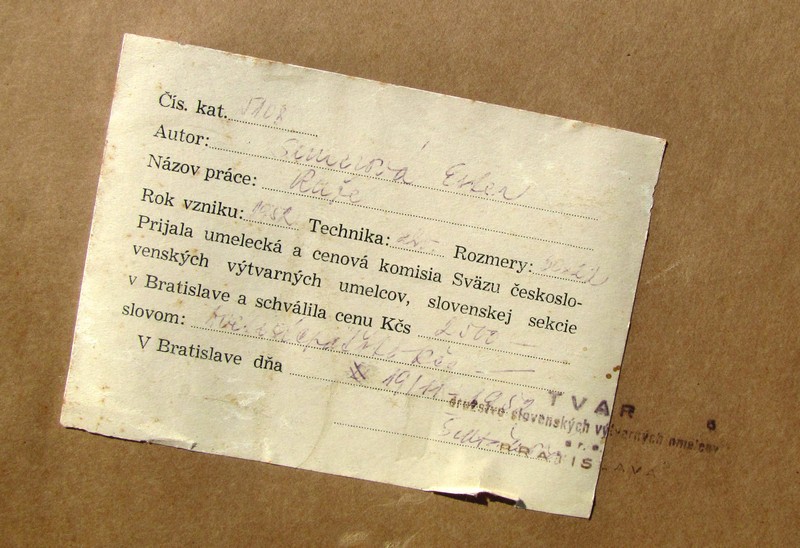 Čís. kat. 5108
Autor: Šimerová Ester
Názov práce: Ruže
Rok vzniku: 1952 Technika: Rozmery:
Prijala umelecká a cenová komisia Sväzu českoslo-
venských výtvarných umelcov, slovenskej sekcie
v Bratislave a schválila cenu Kčs 2500 —
slovom:
V Bratislave dňa 19/11 - 1952
TVAR
družstvo slovenských výtvarných umelcov
s r. o.
BRATISLAVA